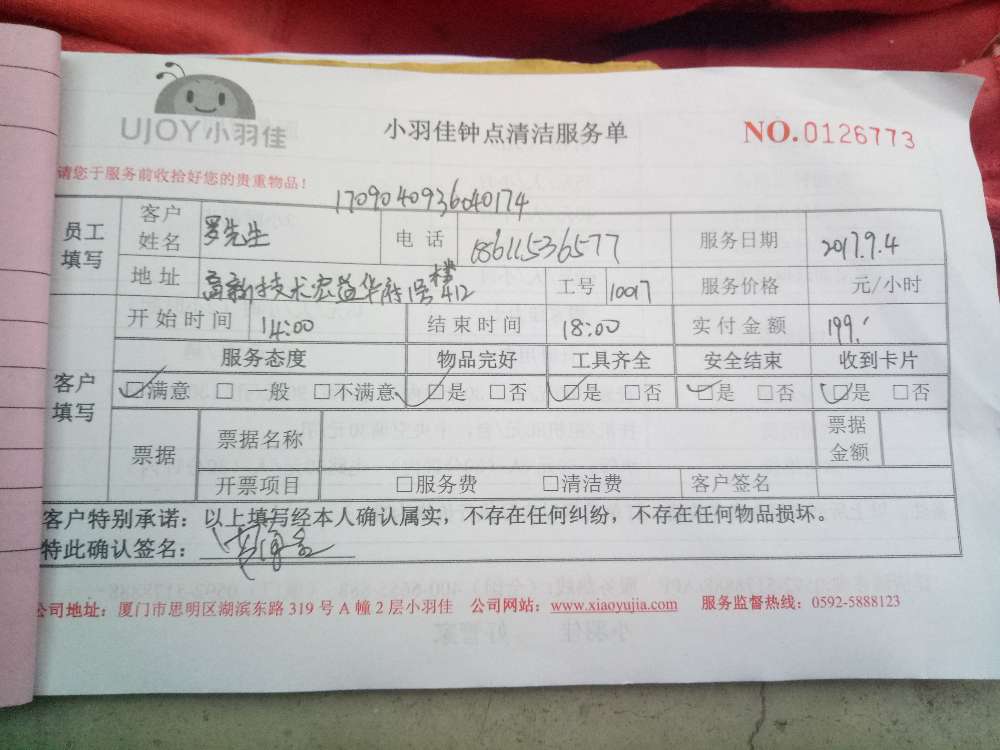 UJOY小羽佳
小羽佳钟点清洁服务单
NO.0126773
请您于服务前收拾好您的贵重物品！
1709040936040174
员工填写 客户姓名 罗先生 电话 18611536577 服务日期 2017.9.4
地址 高新技术宏益华府1号楼412 工号 10017 服务价格 元/小时
客户填写 开始时间 14:00 结束时间 18:00 实付金额 199.
服务态度 物品完好 工具齐全 安全结束 收到卡片
☑满意 □一般 □不满意 ☑是 □否 ☑是 □否 ☑是 □否 ☑是 □否
票据 票据名称 票据金额
开票项目 □服务费 □清洁费 客户签名
客户特别承诺：以上填写经本人确认属实，不存在任何纠纷，不存在任何物品损坏。
特此确认签名：
公司地址：厦门市思明区湖滨东路319号A幢2层小羽佳 公司网站：www.xiaoyujia.com 服务监督热线：0592-5888123